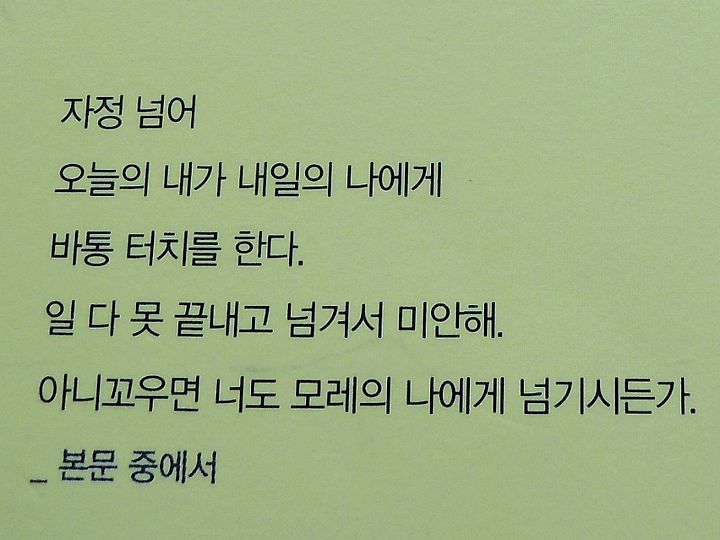 자정 넘어
오늘의 내가 내일의 나에게
바통 터치를 한다.
일 다 못 끝내고 넘겨서 미안해.
아니꼬우면 너도 모레의 나에게 넘기시든가.
_ 본문 중에서